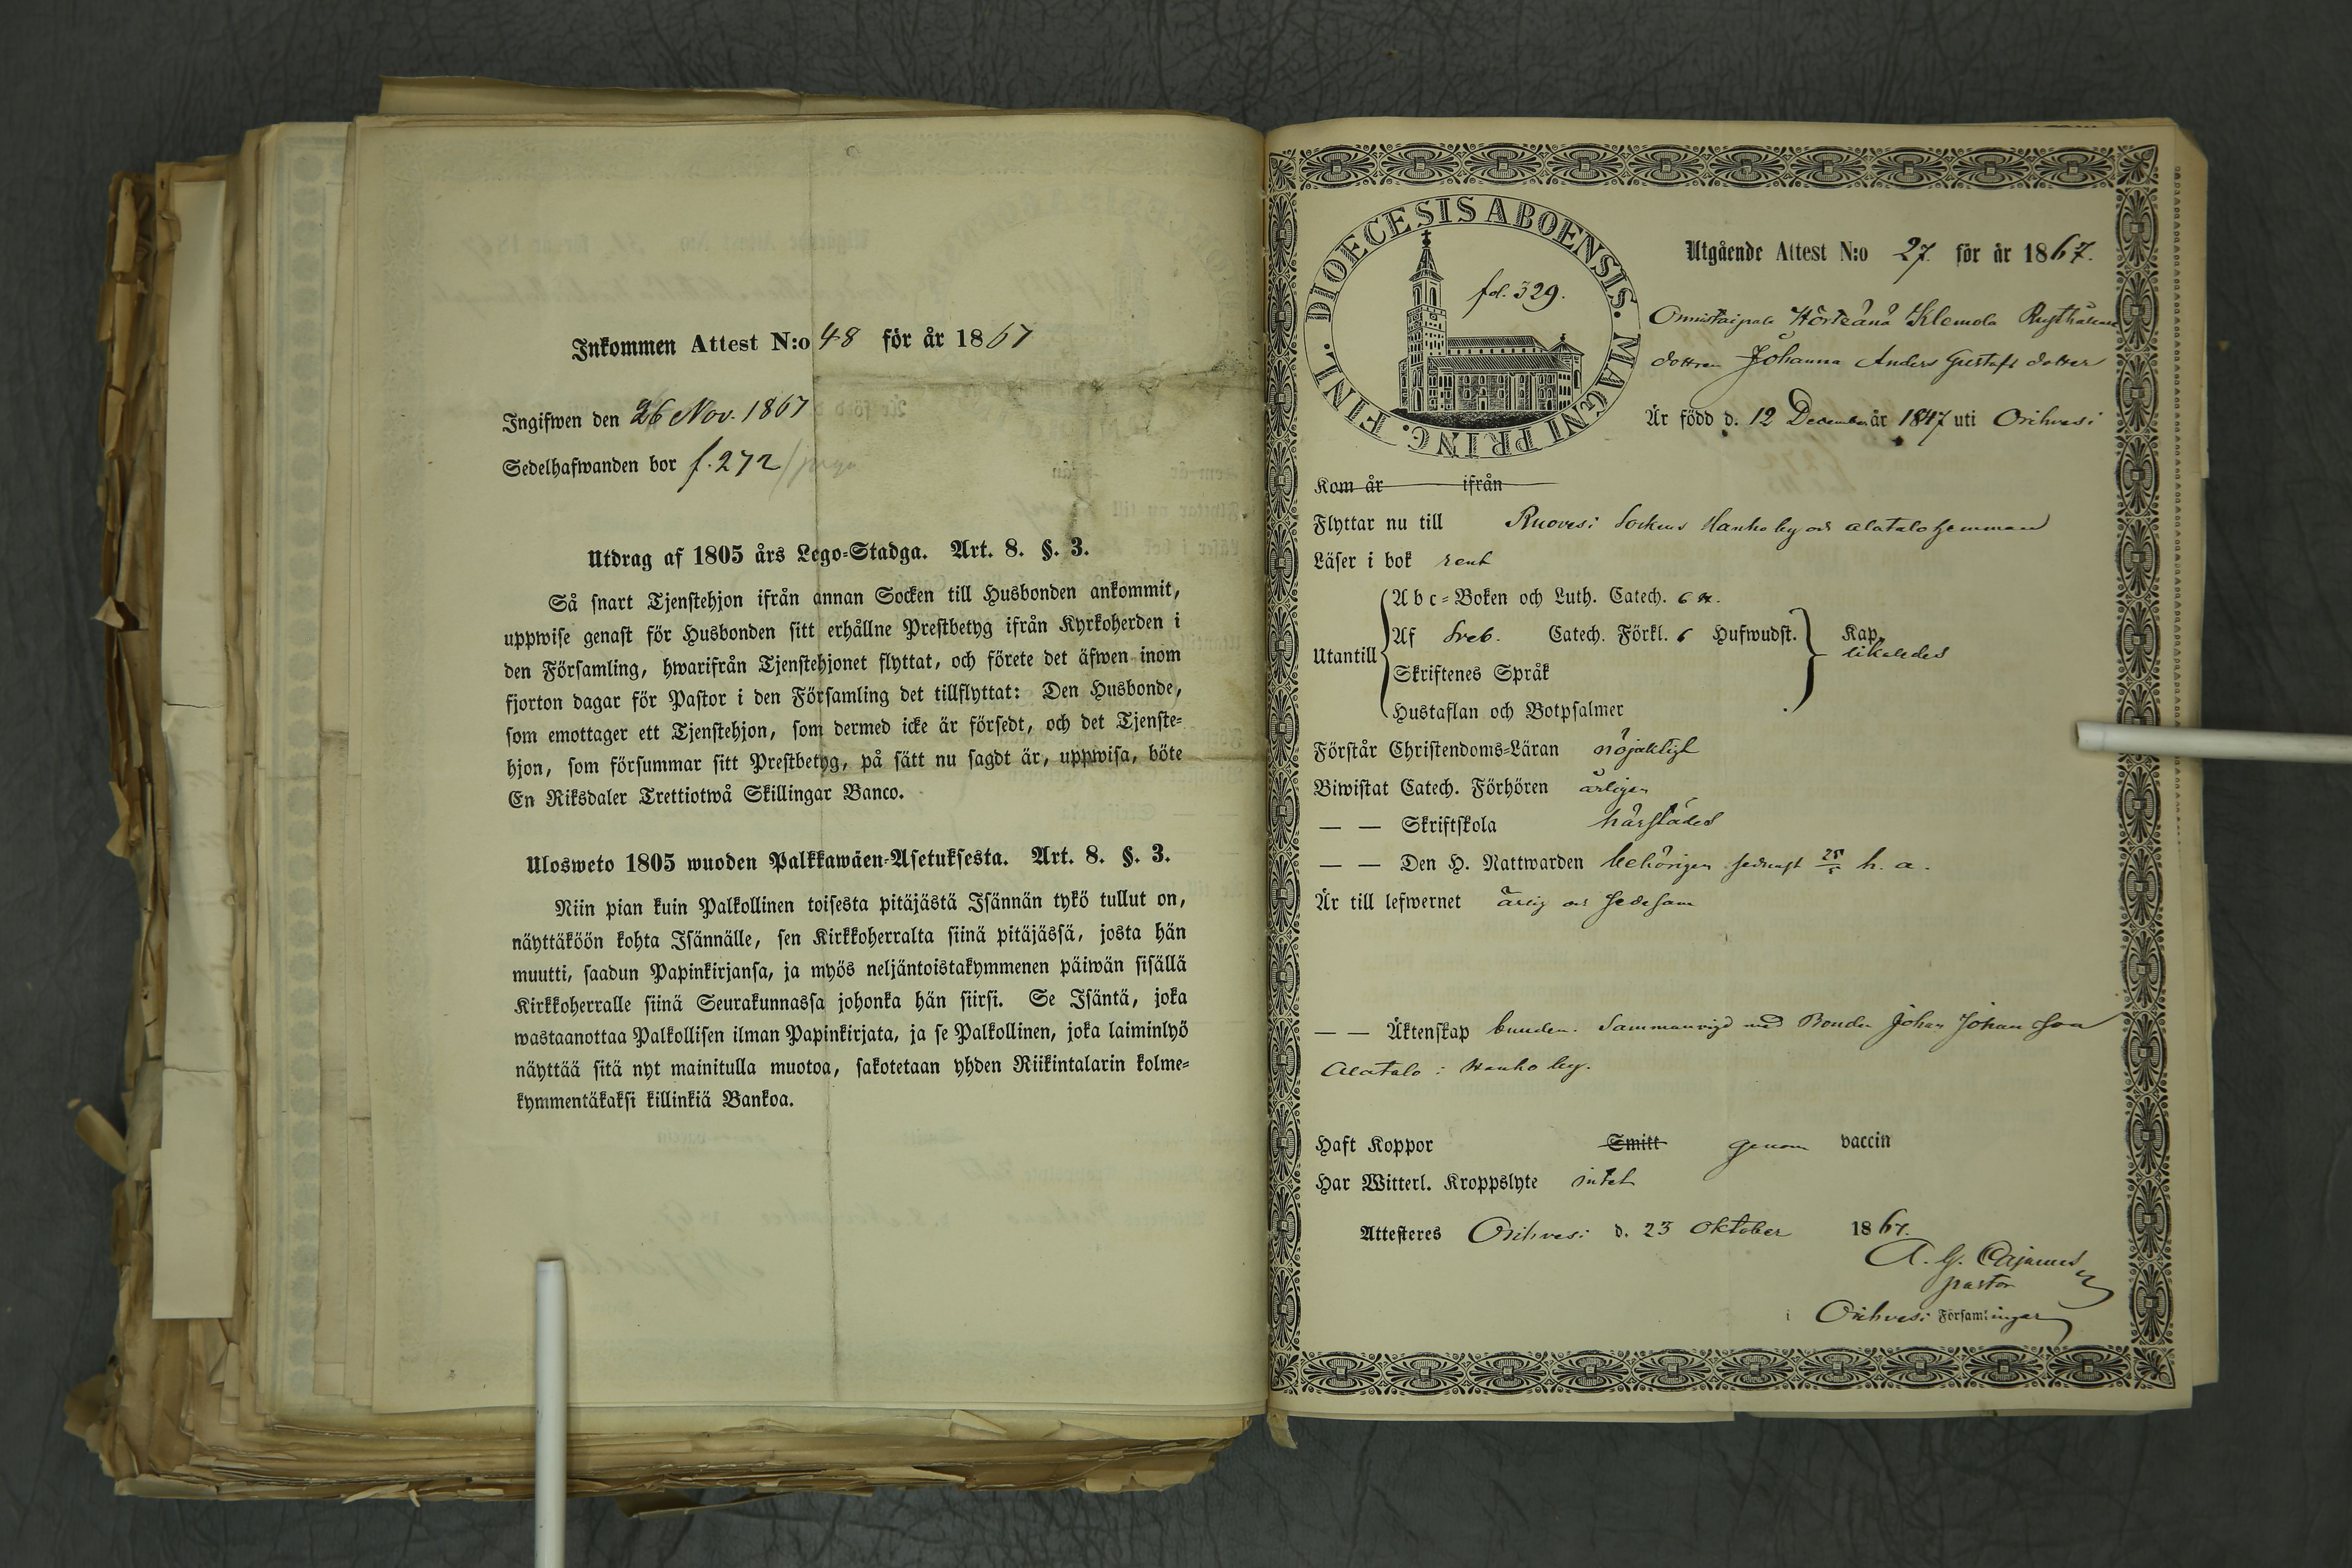 Inkommen Attest N:o 48 för år 1867
Ingifwen den 26 Nov. 1867
Sedelhafwanden bor f. 272
Utdrag af 1805 års Lego-Stadga. Art. 8. §. 3.
Så snart Tjenstehjon ifrån annan Socken till Husbonden ankommit,
uppwise genast för Husbonden sitt erhållne Prestbetyg ifrån Kyrkoherden i
den Församling, hwarifrån Tjenstehjonet flyttat, och förete det äfwen inom
fjorton dagar för Pastor i den Församling det tillflyttat: Den Husbonde,
som emottager ett Tjenstehjon, som dermed icke är försedt, och det Tjenste-
hjon, som försummar sitt Prestbetyg, på sätt nu sagdt är, uppwisa, böte
En Riksdaler Trettiotwå Skillingar Banco.
Ulosweto 1805 wuoden Palkkawäen-Asetuksesta. Art. 8. §. 3.
Niin pian kuin Palkollinen toisesta pitäjästä Isännän tykö tullut on,
näyttäköön kohta Isännälle, sen Kirkkoherralta siinä pitäjässä, josta hän
muutti, saadun Papinkirjansa, ja myös neljäntoistakymmenen päiwän sisällä
Kirkkoherralle siinä Seurakunnassa johonka hän siirsi. Se Isäntä, joka
wastaanottaa Palkollisen ilman Papinkirjata, ja se Palkollinen, joka laiminlyö
näyttää sitä nyt mainitulla muotoa, sakotetaan yhden Riikintalarin kolme-
kymmentäkaksi killinkiä Bankoa.
DIOECESIS ABOENSIS. MAGNI PRINC. FINL.
fol. 329.
Utgående Attest N:o 27. för år 1867.
Onnistaipale Klemola
dottren Johanna Anders Gustafs dotter
Är född d. 12 December år 1847 uti Orihvesi
Kom år ifrån
Flyttar nu till Ruovesi Sockens Hanho by och Alatalo hemman
Läser i bok rent
Utantill
Abc-Boken och Luth. Catech.
Af Sveb. Catech. Förkl. 6 Hufwudst. Kap.
likaledes
Skriftenes Språk
Hustaflan och Botpsalmer
Förstår Christendoms-Läran nöjaktigt
Biwistat Catech. Förhören årligen
— — Skriftskola härstädes
— — Den H. Nattwarden behörigen sednast h. a.
Är till lefwernet ärlig och sedesam
— — Äktenskap bunden. Sammanvigd med Bonden Johan Johansson
Alatalo i Hanho by.
Haft Koppor Smitt genom vaccin
Har Witterl. Kroppslyte intet
Attesteres Orihvesi d. 23 Oktober 1867.
A. G. Cajanus
pastor
i Orihvesi Församlingar